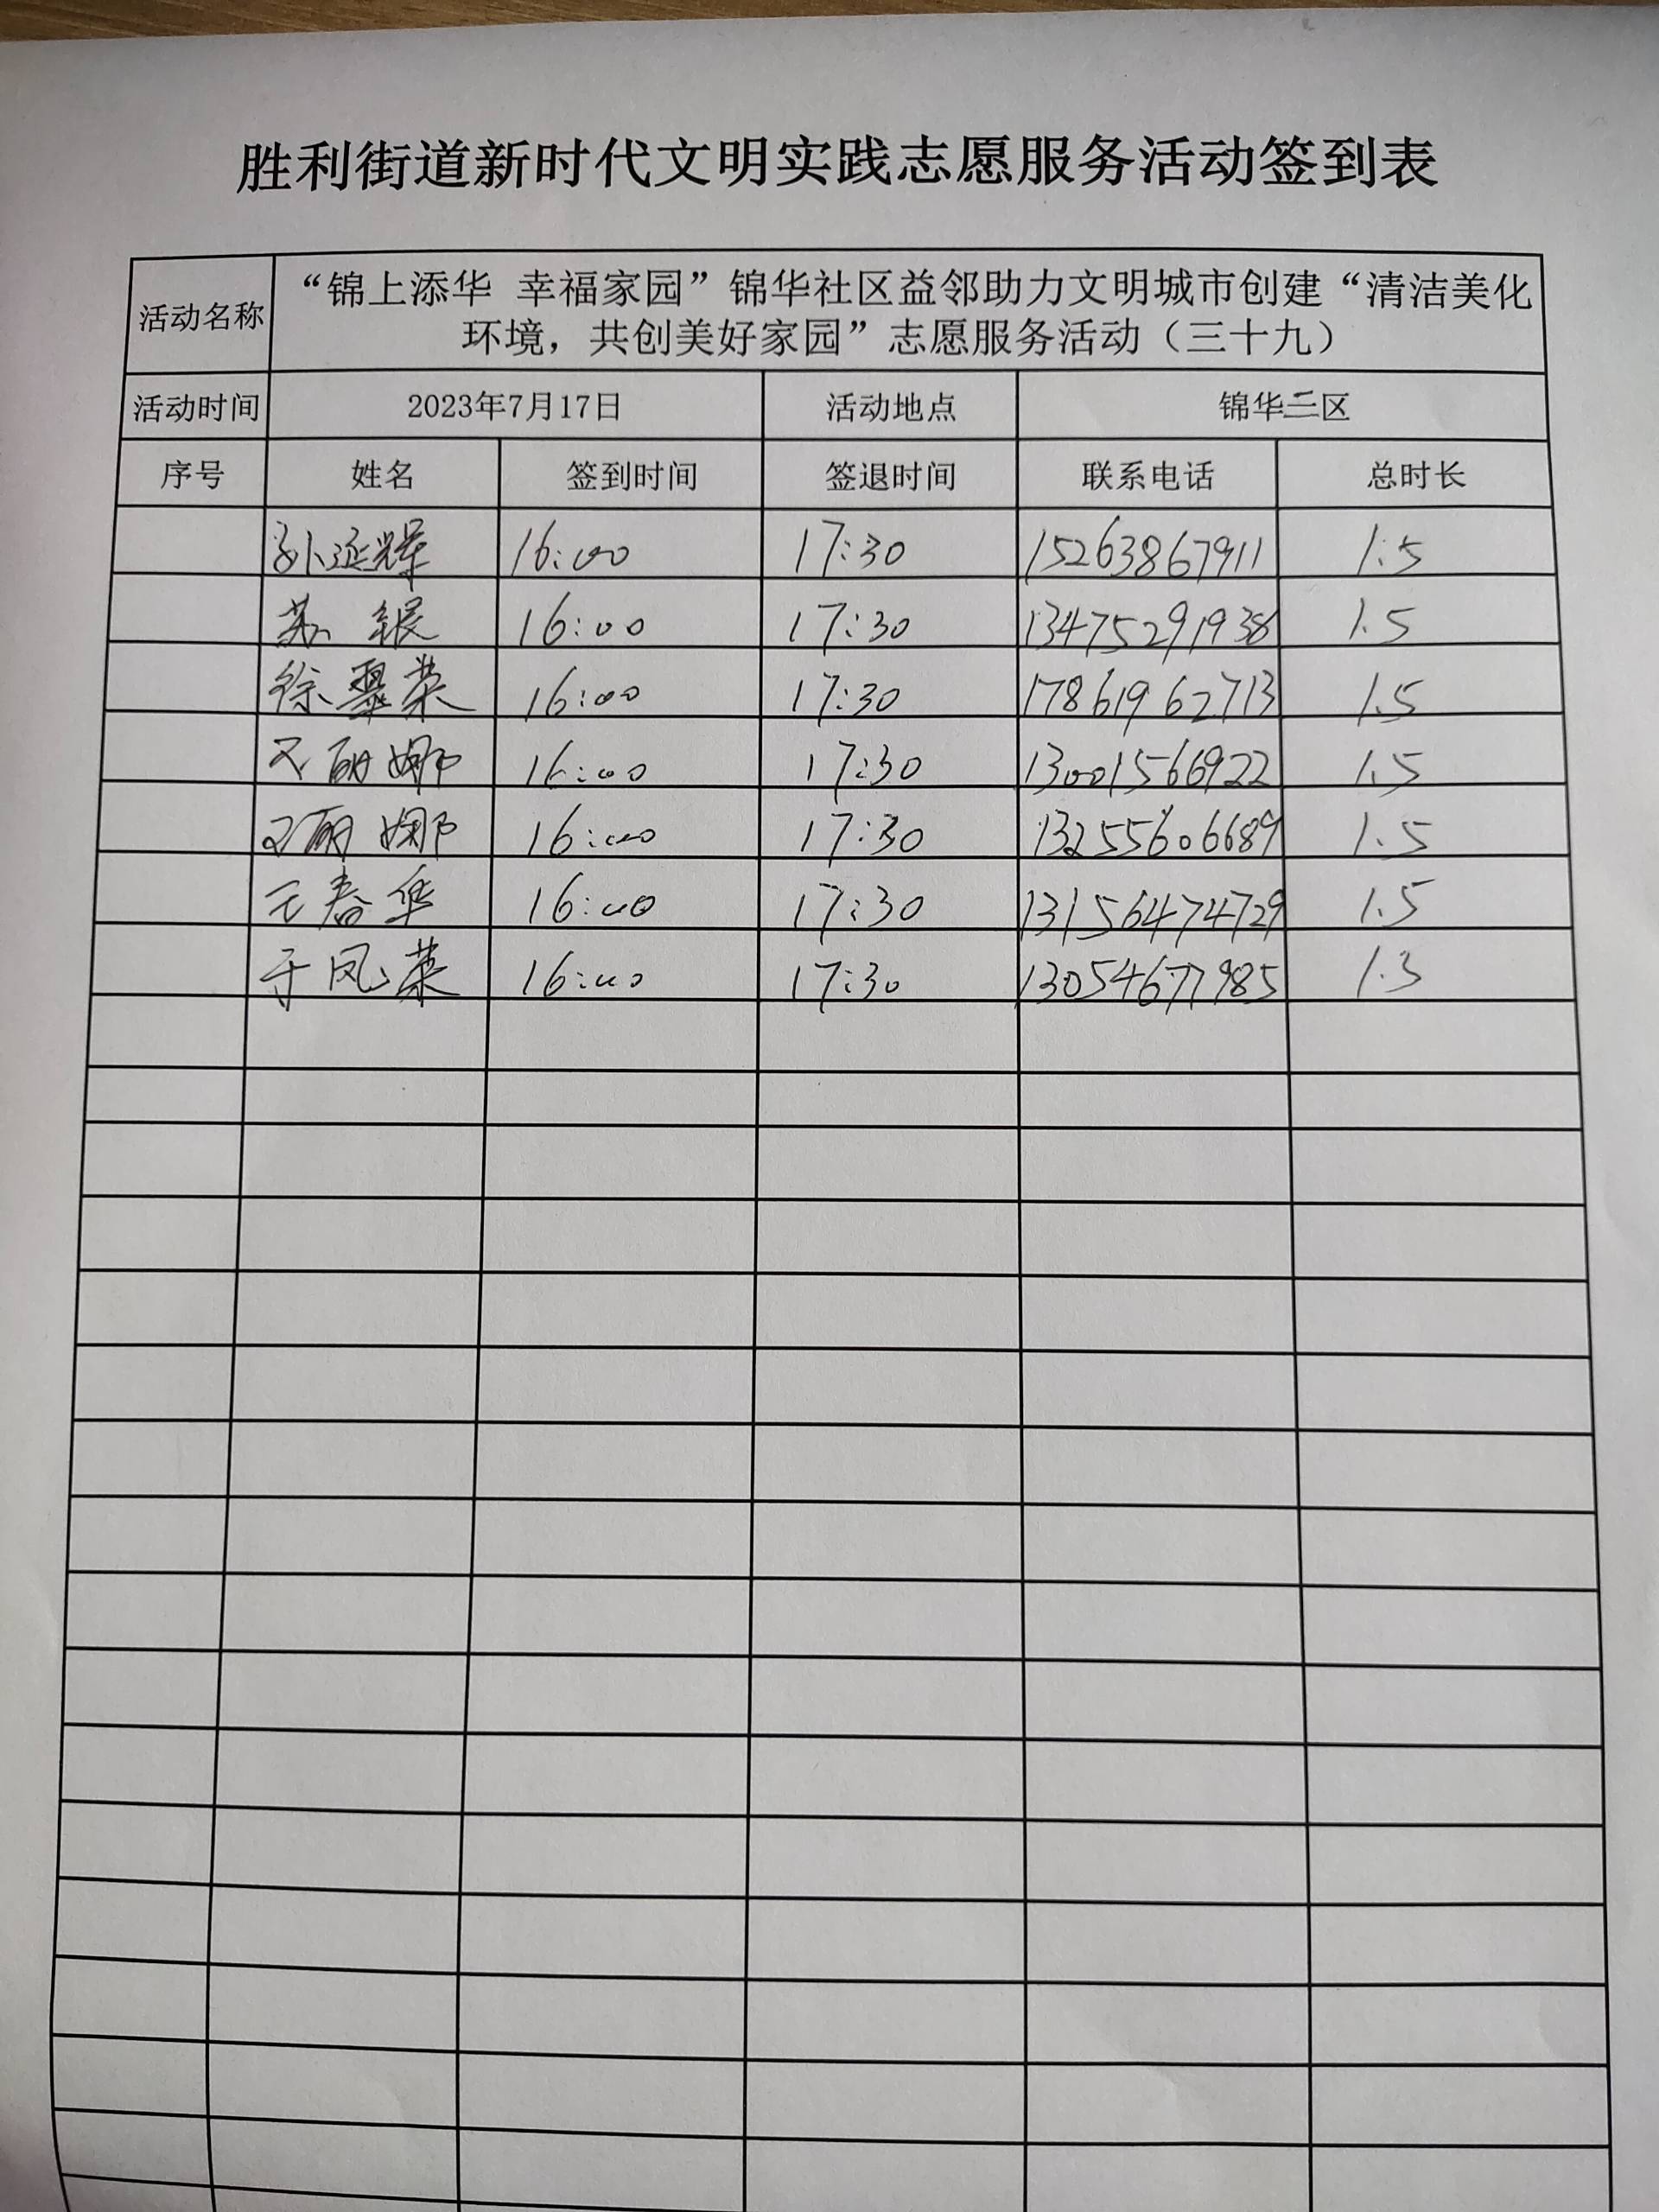 胜利街道新时代文明实践志愿服务活动签到表
活动名称 “锦上添华 幸福家园”锦华社区益邻助力文明城市创建“清洁美化
环境，共创美好家园”志愿服务活动（三十九）
活动时间 2023年7月17日 活动地点 锦华三区
序号 姓名 签到时间 签退时间 联系电话 总时长
孙延辉 16:00 17:30 15263867911 1.5
苏银 16:00 17:30 13475291938 1.5
徐翠荣 16:00 17:30 17861962713 1.5
丽娜 16:00 17:30 13001566922 1.5
丽娜 16:00 17:30 13255606689 1.5
王春华 16:00 17:30 13156474729 1.5
于凤荣 16:00 17:30 13054677985 1.5